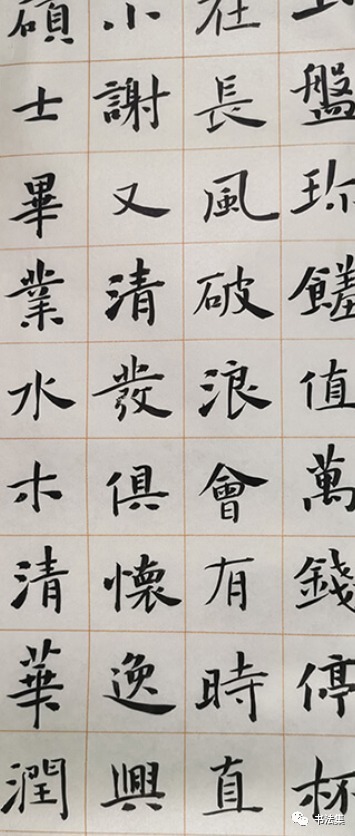 盤珎饈值萬錢停杯
在長風破浪會有時直
小謝又清發俱懷逸興
碩士畢業水木清華潤
书法集